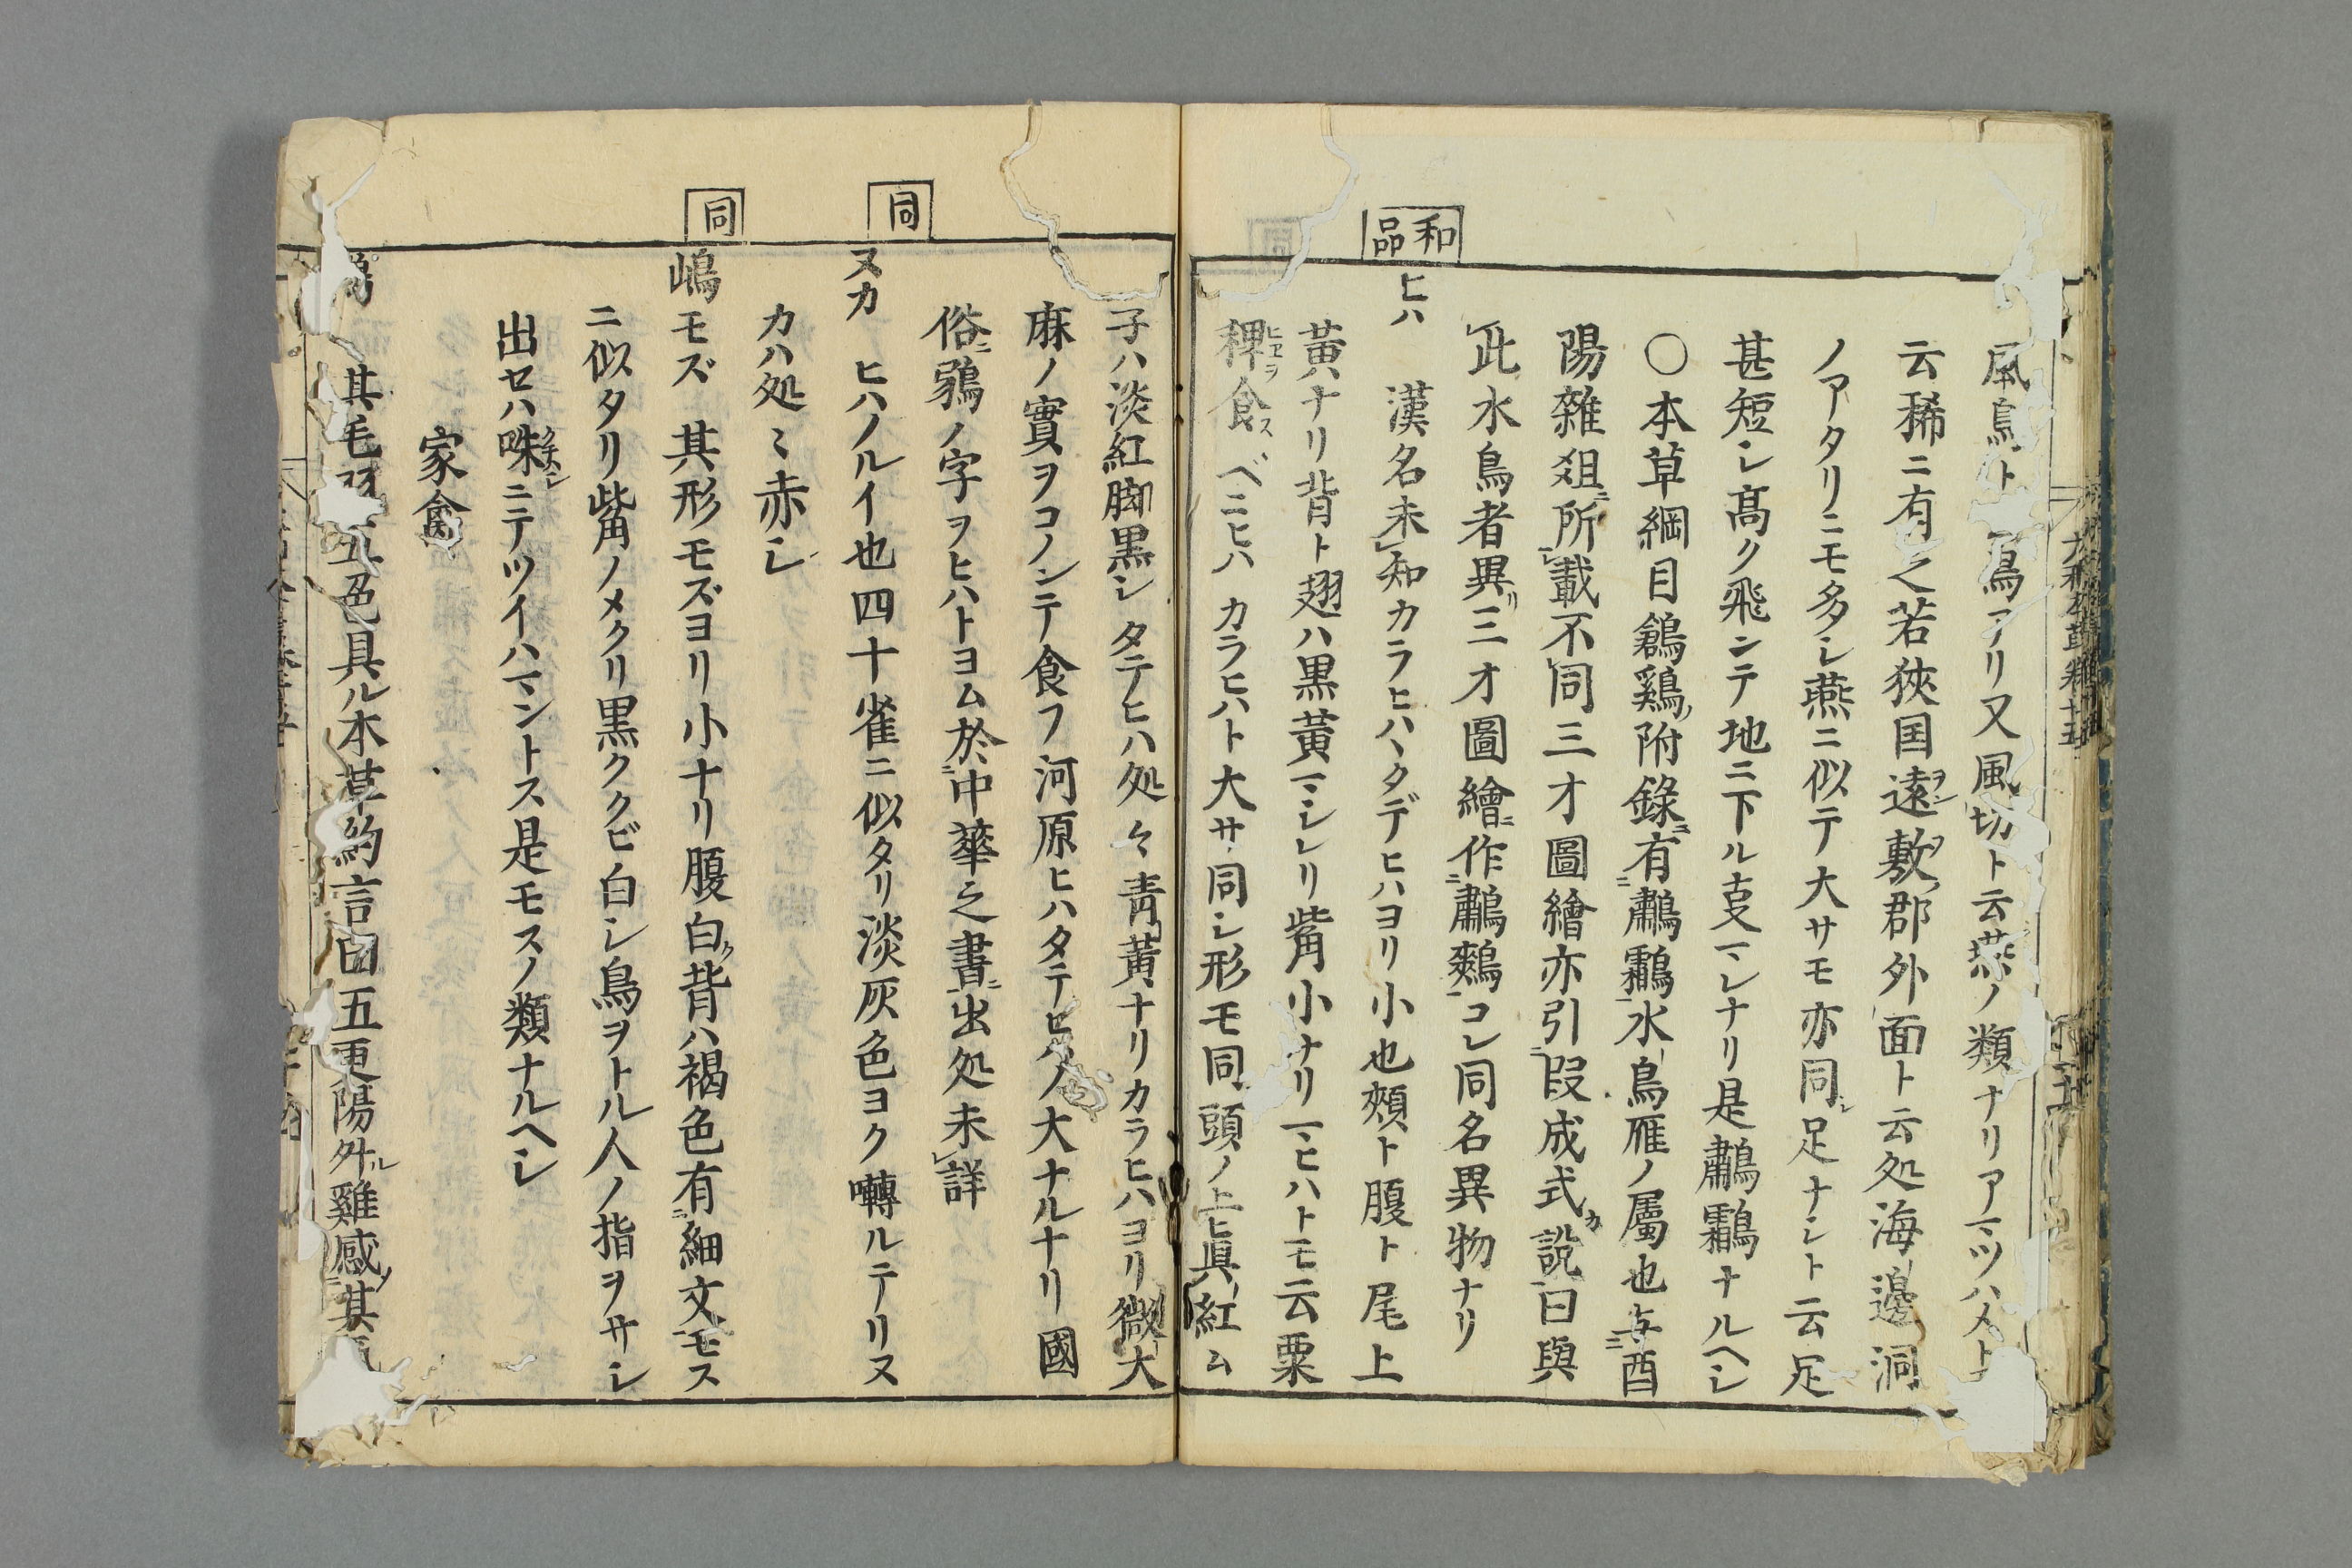 風鳥ト 鳥アリ又風切ト云燕ノ類ナリアマツハメト
云稀ニ有之若狹国遠敷郡外面ト云処海邊洞
ノアタリニモ多シ燕ニ似テ大サモ亦同シ足ナシト云足
甚短シ髙ク飛ンテ地ニ下ル叓マレナリ是鷫鸘ナルヘシ
〇本草綱目鶬鷄附錄有鷫鸘水鳥雁ノ屬也与酉
陽雜俎所載不同三才圖繪亦引段成式カ說曰與
此水鳥者異リ三才圖繪ニ作鷫鷞コレ同名異物ナリ
和品
ヒハ 漢名未知カラヒハヽタデヒハヨリ小也頰ト腹ト尾上
黃ナリ背ト翅ハ黒黃マシレリ觜小ナリマヒハトモ云粟
稗ヒヱヲ食ス ベニヒハ カラヒハト大サ同シ形モ同頭ノ上ヒ眞紅ム
子ハ淡紅脚黒シ タテヒハ処々靑黃ナリカラヒハヨリ微大
麻ノ實ヲコノンテ食フ 河原ヒハタテヒハノ大ナルナリ國
俗ニ鶸ノ字ヲヒハトヨム於中華之書ニ出処未詳
同
ヌカ ヒハノルイ也四十雀ニ似タリ淡灰色ヨク囀ルテリヌ
カハ処〻赤シ
同
嶋モズ 其形モズヨリ小ナリ腹白ク背ハ褐色有細文モス
ニ似タリ觜ノメクリ黒ククビ白シ鳥ヲトル人ノ指ヲサシ
出セハ咮クチハシニテツイハマントス是モスノ類ナルヘシ
家禽
其毛羽五色具ル本草約言曰五更陽外ル雞感其